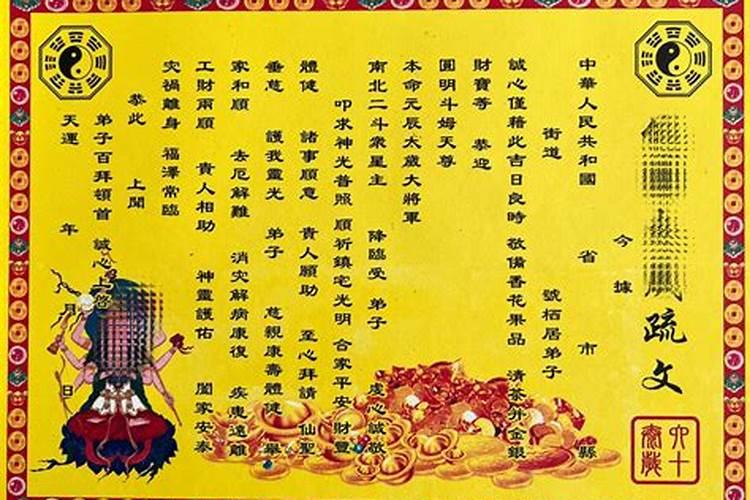 疏文
六十
今據
中華人民共和國 省 市 縣
街道 號栖居弟子
誠心僅藉此吉日良時 敬備香花果品 清茶并金銀
財寶等 恭迎
圓明斗姆天尊
本命元辰太歲大將軍
南北二斗眾星主 降臨受 弟子 虔心誠敬
叩求神光普照 順祈鎮宅光明 合家平安 財豐
體健 諸事順意 貴人願助 至心拜請 仙聖
垂慈 護我靈光 弟子 慈親康壽體健 舉
家和順 去厄解難 消灾解病康復 疾患遠離
工財兩順 貴人相助 神靈護佑 闔家安泰
灾禍離身 福澤常臨
恭此 上聞
弟子百拜頓首 誠心上啓
天運 年 月 日